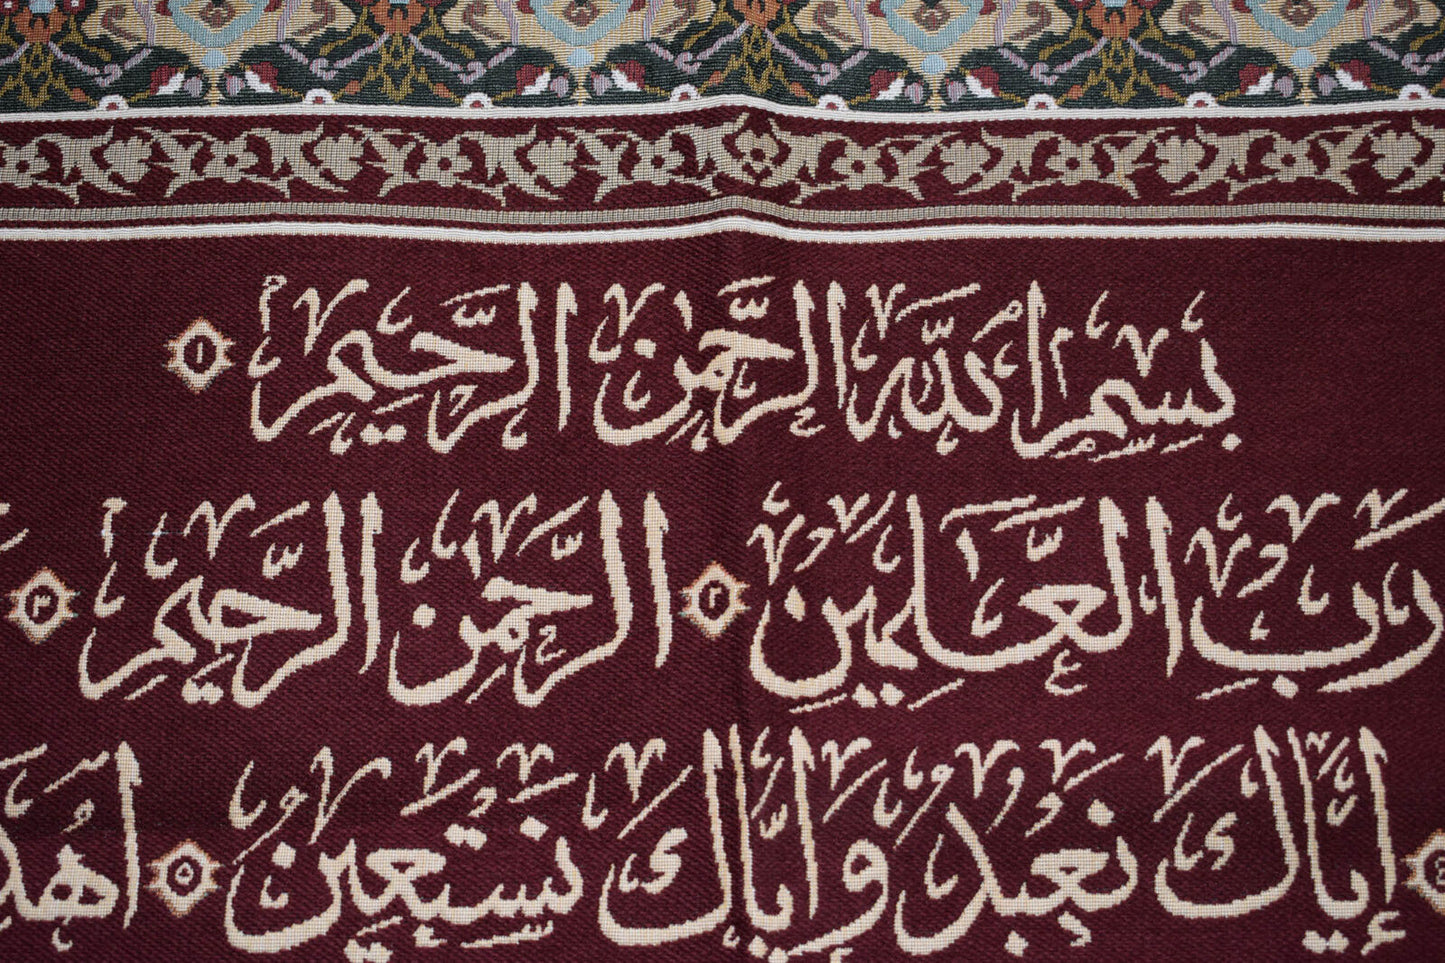 بِسْمِ ٱللَّهِ ٱلرَّحْمَٰنِ ٱلرَّحِيمِ ١
رَبِّ ٱلْعَٰلَمِينَ ٢ ٱلرَّحْمَٰنِ ٱلرَّحِيمِ ٣
٤ إِيَّاكَ نَعْبُدُ وَإِيَّاكَ نَسْتَعِينُ ٥